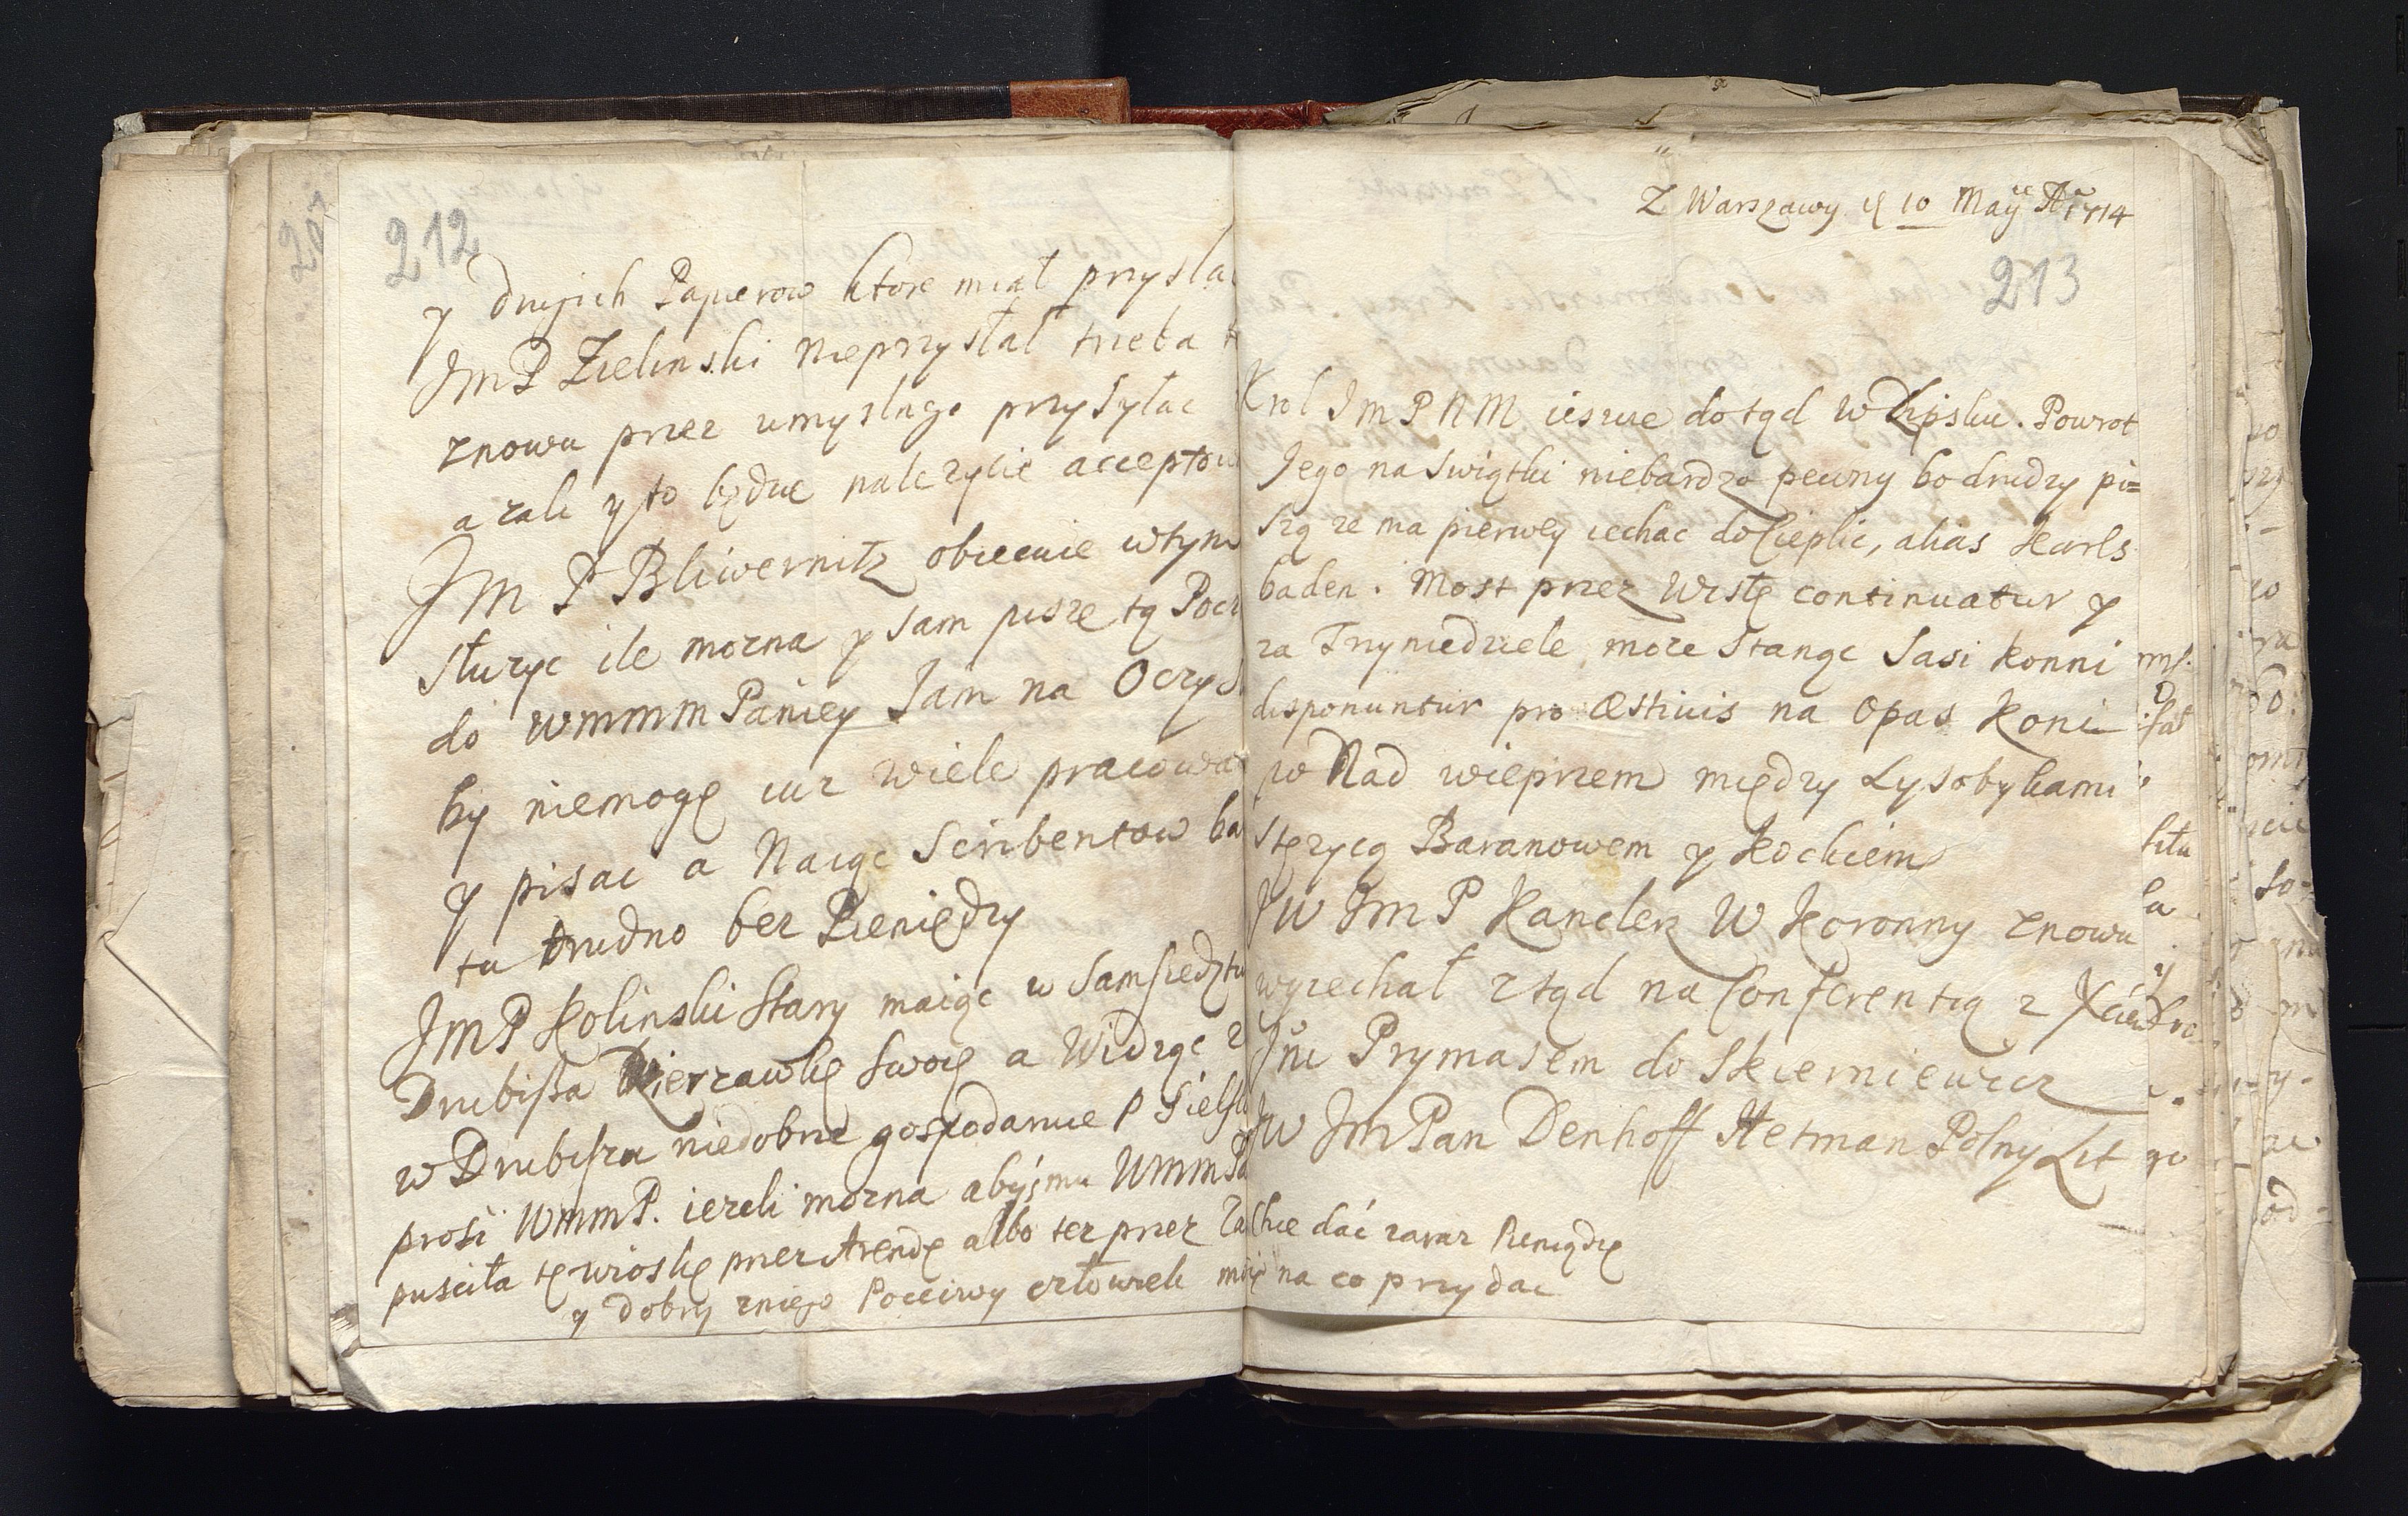 212
y drugich Papierow ktore miał przysła
JmP Zielinski nieprzysłał trzeba
znowu przez umyslnego przysyłac
azali y to będzie nalezycie accepto
Jm P Bliwernitz obiecuie wtym
słuzyc ile mozna y sam pisze tą Pocz
do WmmmPaniey Jam na Oczy
by niemogę iuz wiele pracowa
y pisac a Naiąc Scribentow ba
tu trudno bez Pieniędzy
JmP Kolinski Stary maiąc w Samsiedztw
Drubißa Dzierzawkę swoię a Widząc
w Drubiszu niedobrze gospodaruie P Sielsk
prosi WmmP. iezeli mozna abysmu WmmPa
pusciła tę wioskę przez Arendę albo tez przez Za chce dać zaraz Pieniądze
y dobry zniego Poczciwy człowiek na co przydac
Z Warszawy 10 Maÿ Aō 1714
213
Krol JmPNM ieszcze dotąd w Lipsku. Powrot
Jego na swiątki niebardzo pewny bo drudzy pi=
szą ze ma pierwey iechac do Cieplic, alias Karls
baden. Most przez Wisłę continuatur y
za Trzy niedziele moze stanąc Sasi konni
disponuntur pro æstiuis na Opas Koni
w Nad wieprzem między Lysobykami
stęzycą Baranowem y Kockiem
JW JmP Kanclerz W Koronny znowu
wyiechał ztąd na Conferentią z
Prymasem do Skierniewicz
JW JmPan Denhoff Hetman Polny Lit